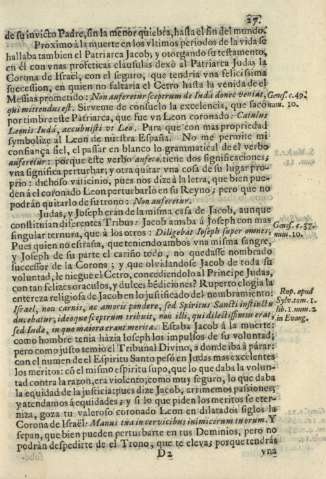 27.
de su invicto Padre, sin la menor quiebra, hasta el fin del mundo.
Proximo à la muerte en los vltimos periodos de la vida se
hallaba tambien el Patriarca Jacob, y otorgando su testamento,
en èl con vnas profeticas clausulas dexò al Patriarca Judas la
Corona de Israèl, con el seguro, que tendria vna felicissima
succession, en quien no faltaria el Cetro hasta la venida del
Messias prometido: Non auferetur sceptrum de Iuda donec veniat,
qui mittendus est. Sirveme de consuelo la excelencia, que saco
por timbre este Patriarca, que fue vn Leon coronado: Catulus
Leonis Iuda, accubuisti vt Leo. Para que con mas propriedad
symbolize al Leon de nuestra España. No me permite mi
confiança fiel, el passar en blanco lo grammatical de el verbo
auferetur: porque este verbo aufero tiene dos significaciones;
vna significa perturbar, y otra quitar vna cosa de su lugar pro-
prio: dichoso vaticinio, pues nos dize à la letra, que bien pue-
den à el coronado Leon perturbarlo en su Reyno; pero que no
podràn quitarlo de su trono: Non auferetur.
Judas, y Joseph eran de la misma casa de Jacob, aunque
constituìan diferentes Tribus: Jacob amaba à Joseph con mas
singular ternura, que à los otros: Diligebat Ioseph super omnes,
Pues quien no estrasa, que teniendo ambos vna misma sangre,
y Joseph de su parte el cariño todo, no quedasse nombrado
successor de la Corona; y que olvidandose Jacob de toda su
voluntad, le niegue el Cetro, concediendolo al Principe Judas,
con tan felizes oraculos, y dulces bediciones? Ruperto elogia la
entereza religiosa de Jacob en lo justificado del nombramiento:
Israel, non carnis, ac amoris pondere, sed Spiritus Sancti instinctu
ducebatur; ideoque sceptrum tribuit, non illi, qui dilectissimus erat;
sed Iuda, in quo maiora erant merita. Estaba Jacob à la muerte:
como hombre tenia hàzia Joseph los impulsos de su voluntad;
pero como justo temiò el Tribunal Divino, à donde iba à parar:
con el numen de el Espiritu Santo pesò en Judas mas excelentes
los meritos: cò el mismo espiritu supo, que lo que daba la volun-
tad contra la razon, era violento; como muy seguro, lo que daba
la equidad de la justicia; pues dize Jacob, arrimemos passiones,
y atendamos à equidades; y si lo que piden los meritos se eter-
niza, goza tu valeroso coronado Leon en dilatados siglos la
Corona de Israèl: Manus tua in cervicibus inimicorum tuorum. Y
sepan, que bien pueden perturbarte en tus Dominios, pero no
podràn despedirte de el Trono, que te eleva; porque tendràs
D 2
vna
Genes. c. 49.
num. 10.
Genes. c. 37.
num. 10.
Rup. apud
Sylv. tom. 1.
lib. 1. num. 2
in Evang.